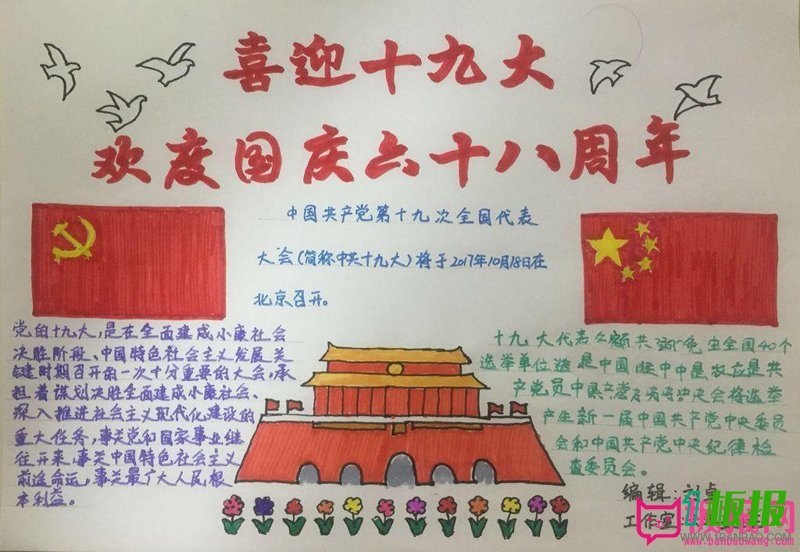 喜迎十九大
欢度国庆六十八周年
中国共产党第十九次全国代表
大会(简称中共十九大)将于2017年10月18日在
北京召开。
党的十九大,是在全面建成小康社会
决胜阶段、中国特色社会主义发展关
键时期召开的一次十分重要的大会,承
担着谋划决胜全面建成小康社会、
深入推进社会主义现代化建设的
重大任务,事关党和国家事业继
往开来,事关中国特色社会主义
前途命运,事关最广大人民根
本利益。
十九大代表名额共 全国40个
选举单位选 中国
产党员 选举
产生新一届中国共产党中央委员
会和中国共产党中央纪律检
查委员会。
编辑:刘
工作室
板报网
www.1banbao.com